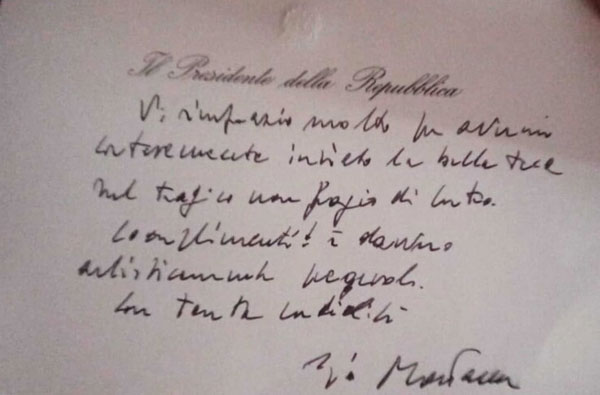 Il Presidente della Repubblica
Vi ringrazio molto per avermi
cortesemente inviato la bella
sul tragico naufragio di Cutro.
Complimenti! è davvero
artisticamente pregevole.
Con tanta cordialità
Mattarella